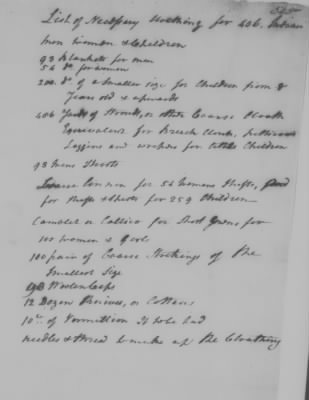 List of Necessary Cloathing for 406 Indian
Men Women & Children
93 Blankets for men
54 Do. for women
200 Do. of a smaller size for Children from 8
Years old & upwards
406 Yards of Stroud, or other Coarse Cloath
Equivalent for Breech Clouts, Petticoats
Leggins and wrappers for little Children
93 Mens Shirts
Coarse Linnen for 54 Womens Shifts, and
for Shifts & Shirts for 259 Children
Camblet or Callico for Short Gowns for
100 women & Girls
100 pair of Coarse Stockings of the
Smallest Size
93 Woolen Caps
12 Dozen Knives, or Cotteaus
10 lb. of Vermillion If to be had
needles & thread to make up the Cloathing